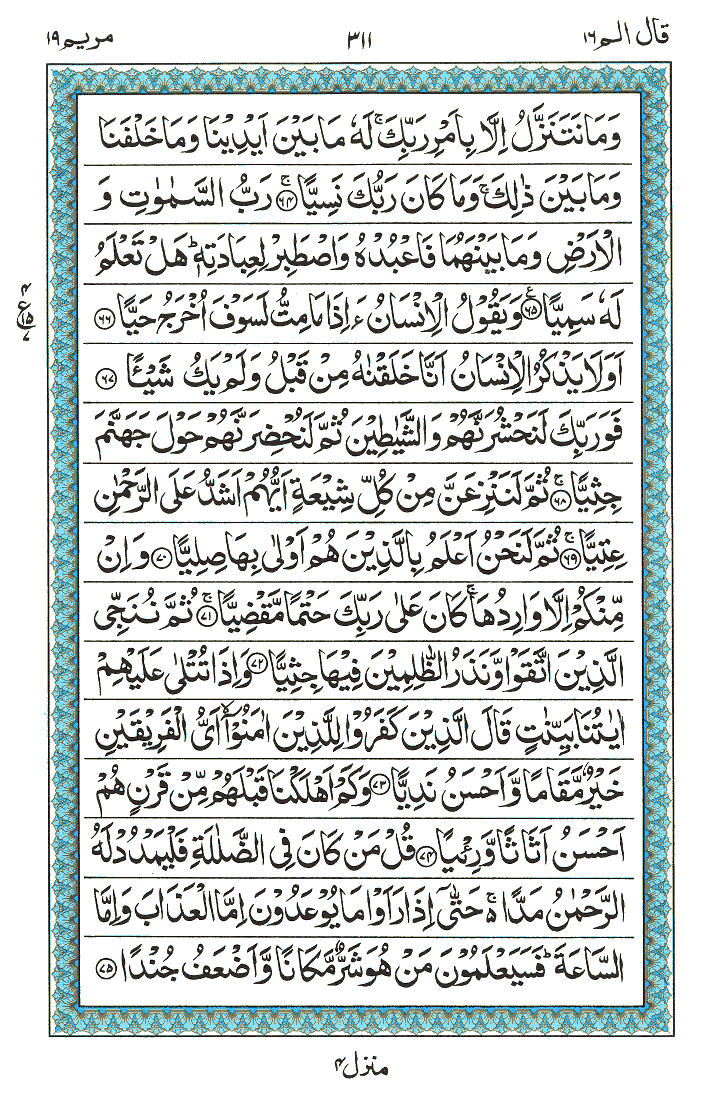 قال الم ١٦
٣١١
مريم ١٩
وَمَا نَتَنَزَّلُ اِلَّا بِاَمْرِ رَبِّكَ ۚ لَهٗ مَا بَيْنَ اَيْدِيْنَا وَمَا خَلْفَنَا
وَمَا بَيْنَ ذٰلِكَ ۚ وَمَا كَانَ رَبُّكَ نَسِيًّا ۚ ﴿٦٤﴾ رَبُّ السَّمٰوٰتِ وَ
الْاَرْضِ وَمَا بَيْنَهُمَا فَاعْبُدْهُ وَاصْطَبِرْ لِعِبَادَتِهٖ ؕ هَلْ تَعْلَمُ
لَهٗ سَمِيًّا ﴿٦٥﴾ ع وَيَقُوْلُ الْاِنْسَانُ ءَاِذَا مَا مِتُّ لَسَوْفَ اُخْرَجُ حَيًّا ﴿٦٦﴾
٤ ع ١٥ ٧
اَوَلَا يَذْكُرُ الْاِنْسَانُ اَنَّا خَلَقْنٰهُ مِنْ قَبْلُ وَلَمْ يَكُ شَيْـًٔا ﴿٦٧﴾
فَوَرَبِّكَ لَنَحْشُرَنَّهُمْ وَالشَّيٰطِيْنَ ثُمَّ لَنُحْضِرَنَّهُمْ حَوْلَ جَهَنَّمَ
جِثِيًّا ۚ ﴿٦٨﴾ ثُمَّ لَنَنْزِعَنَّ مِنْ كُلِّ شِيْعَةٍ اَيُّهُمْ اَشَدُّ عَلَى الرَّحْمٰنِ
عِتِيًّا ۚ ﴿٦٩﴾ ثُمَّ لَنَحْنُ اَعْلَمُ بِالَّذِيْنَ هُمْ اَوْلٰى بِهَا صِلِيًّا ﴿٧٠﴾ وَاِنْ
مِّنْكُمْ اِلَّا وَارِدُهَا ۚ كَانَ عَلٰى رَبِّكَ حَتْمًا مَّقْضِيًّا ۚ ﴿٧١﴾ ثُمَّ نُنَجِّى
الَّذِيْنَ اتَّقَوْا وَّنَذَرُ الظّٰلِمِيْنَ فِيْهَا جِثِيًّا ﴿٧٢﴾ وَاِذَا تُتْلٰى عَلَيْهِمْ
اٰيٰتُنَا بَيِّنٰتٍ قَالَ الَّذِيْنَ كَفَرُوْا لِلَّذِيْنَ اٰمَنُوْۤا ۙ اَىُّ الْفَرِيْقَيْنِ
خَيْرٌ مَّقَامًا وَّاَحْسَنُ نَدِيًّا ﴿٧٣﴾ وَكَمْ اَهْلَكْنَا قَبْلَهُمْ مِّنْ قَرْنٍ هُمْ
اَحْسَنُ اَثَاثًا وَّرِءْيًا ﴿٧٤﴾ قُلْ مَنْ كَانَ فِى الضَّلٰلَةِ فَلْيَمْدُدْ لَهُ
الرَّحْمٰنُ مَدًّا ۚ ۵ حَتّٰۤى اِذَا رَاَوْا مَا يُوْعَدُوْنَ اِمَّا الْعَذَابَ وَاِمَّا
السَّاعَةَ ؕ فَسَيَعْلَمُوْنَ مَنْ هُوَ شَرٌّ مَّكَانًا وَّاَضْعَفُ جُنْدًا ﴿٧٥﴾
منزل ٤